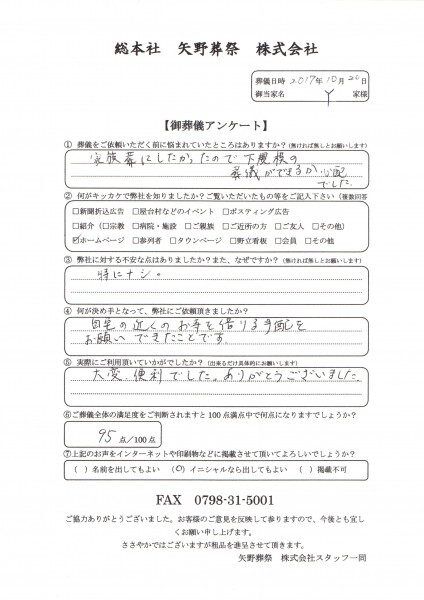 総本社 矢野葬祭 株式会社
葬儀日時 2017年10月20日
御当家名 Y 家様
【御葬儀アンケート】
① 葬儀をご依頼いただく前に悩まれていたところはありますか？(無ければ無しとお願いします)
家族葬にしたかったので下規模の
葬儀ができるか心配
でした
② 何がキッカケで弊社を知りましたか？ご覧いただいたもの等をご記入下さい（複数回答
□新聞折込広告 □屋台村などのイベント □ポスティング広告
□紹介（□宗教 □病院・施設 □ご親族 □ご近所の方 □ご友人 □その他）
☑ホームページ □参列者 □タウンページ □野立看板 □会員 □その他
③ 弊社に対する不安な点はありますか？また、なぜですか？(無ければ無しとお願いします)
特にナシ。
④ 何が決め手となって、弊社にご依頼頂きましたか？
自宅の近くのお寺を借りる手配を
お願いできたことです。
⑤ 実際にご利用頂いていかがでしたか？(出来るだけ具体的にお願いします)
大変便利でした。ありがとうございました。
⑥ご葬儀全体の満足度をご判断されますと100点満点中で何点になりますでしょうか？
95 点/100点
⑦上記のお声をインターネットや印刷物などに掲載させて頂いてよろしいでしょうか？
（ ）名前を出してもよい （○）イニシャルなら出してもよい （ ）掲載不可
FAX 0798-31-5001
ご協力ありがとうございました。お客様のご意見を反映して参りますので、今後とも宜し
くお願い申し上げます。
ささやかではございますが粗品を進呈させて頂きます。
矢野葬祭 株式会社スタッフ一同